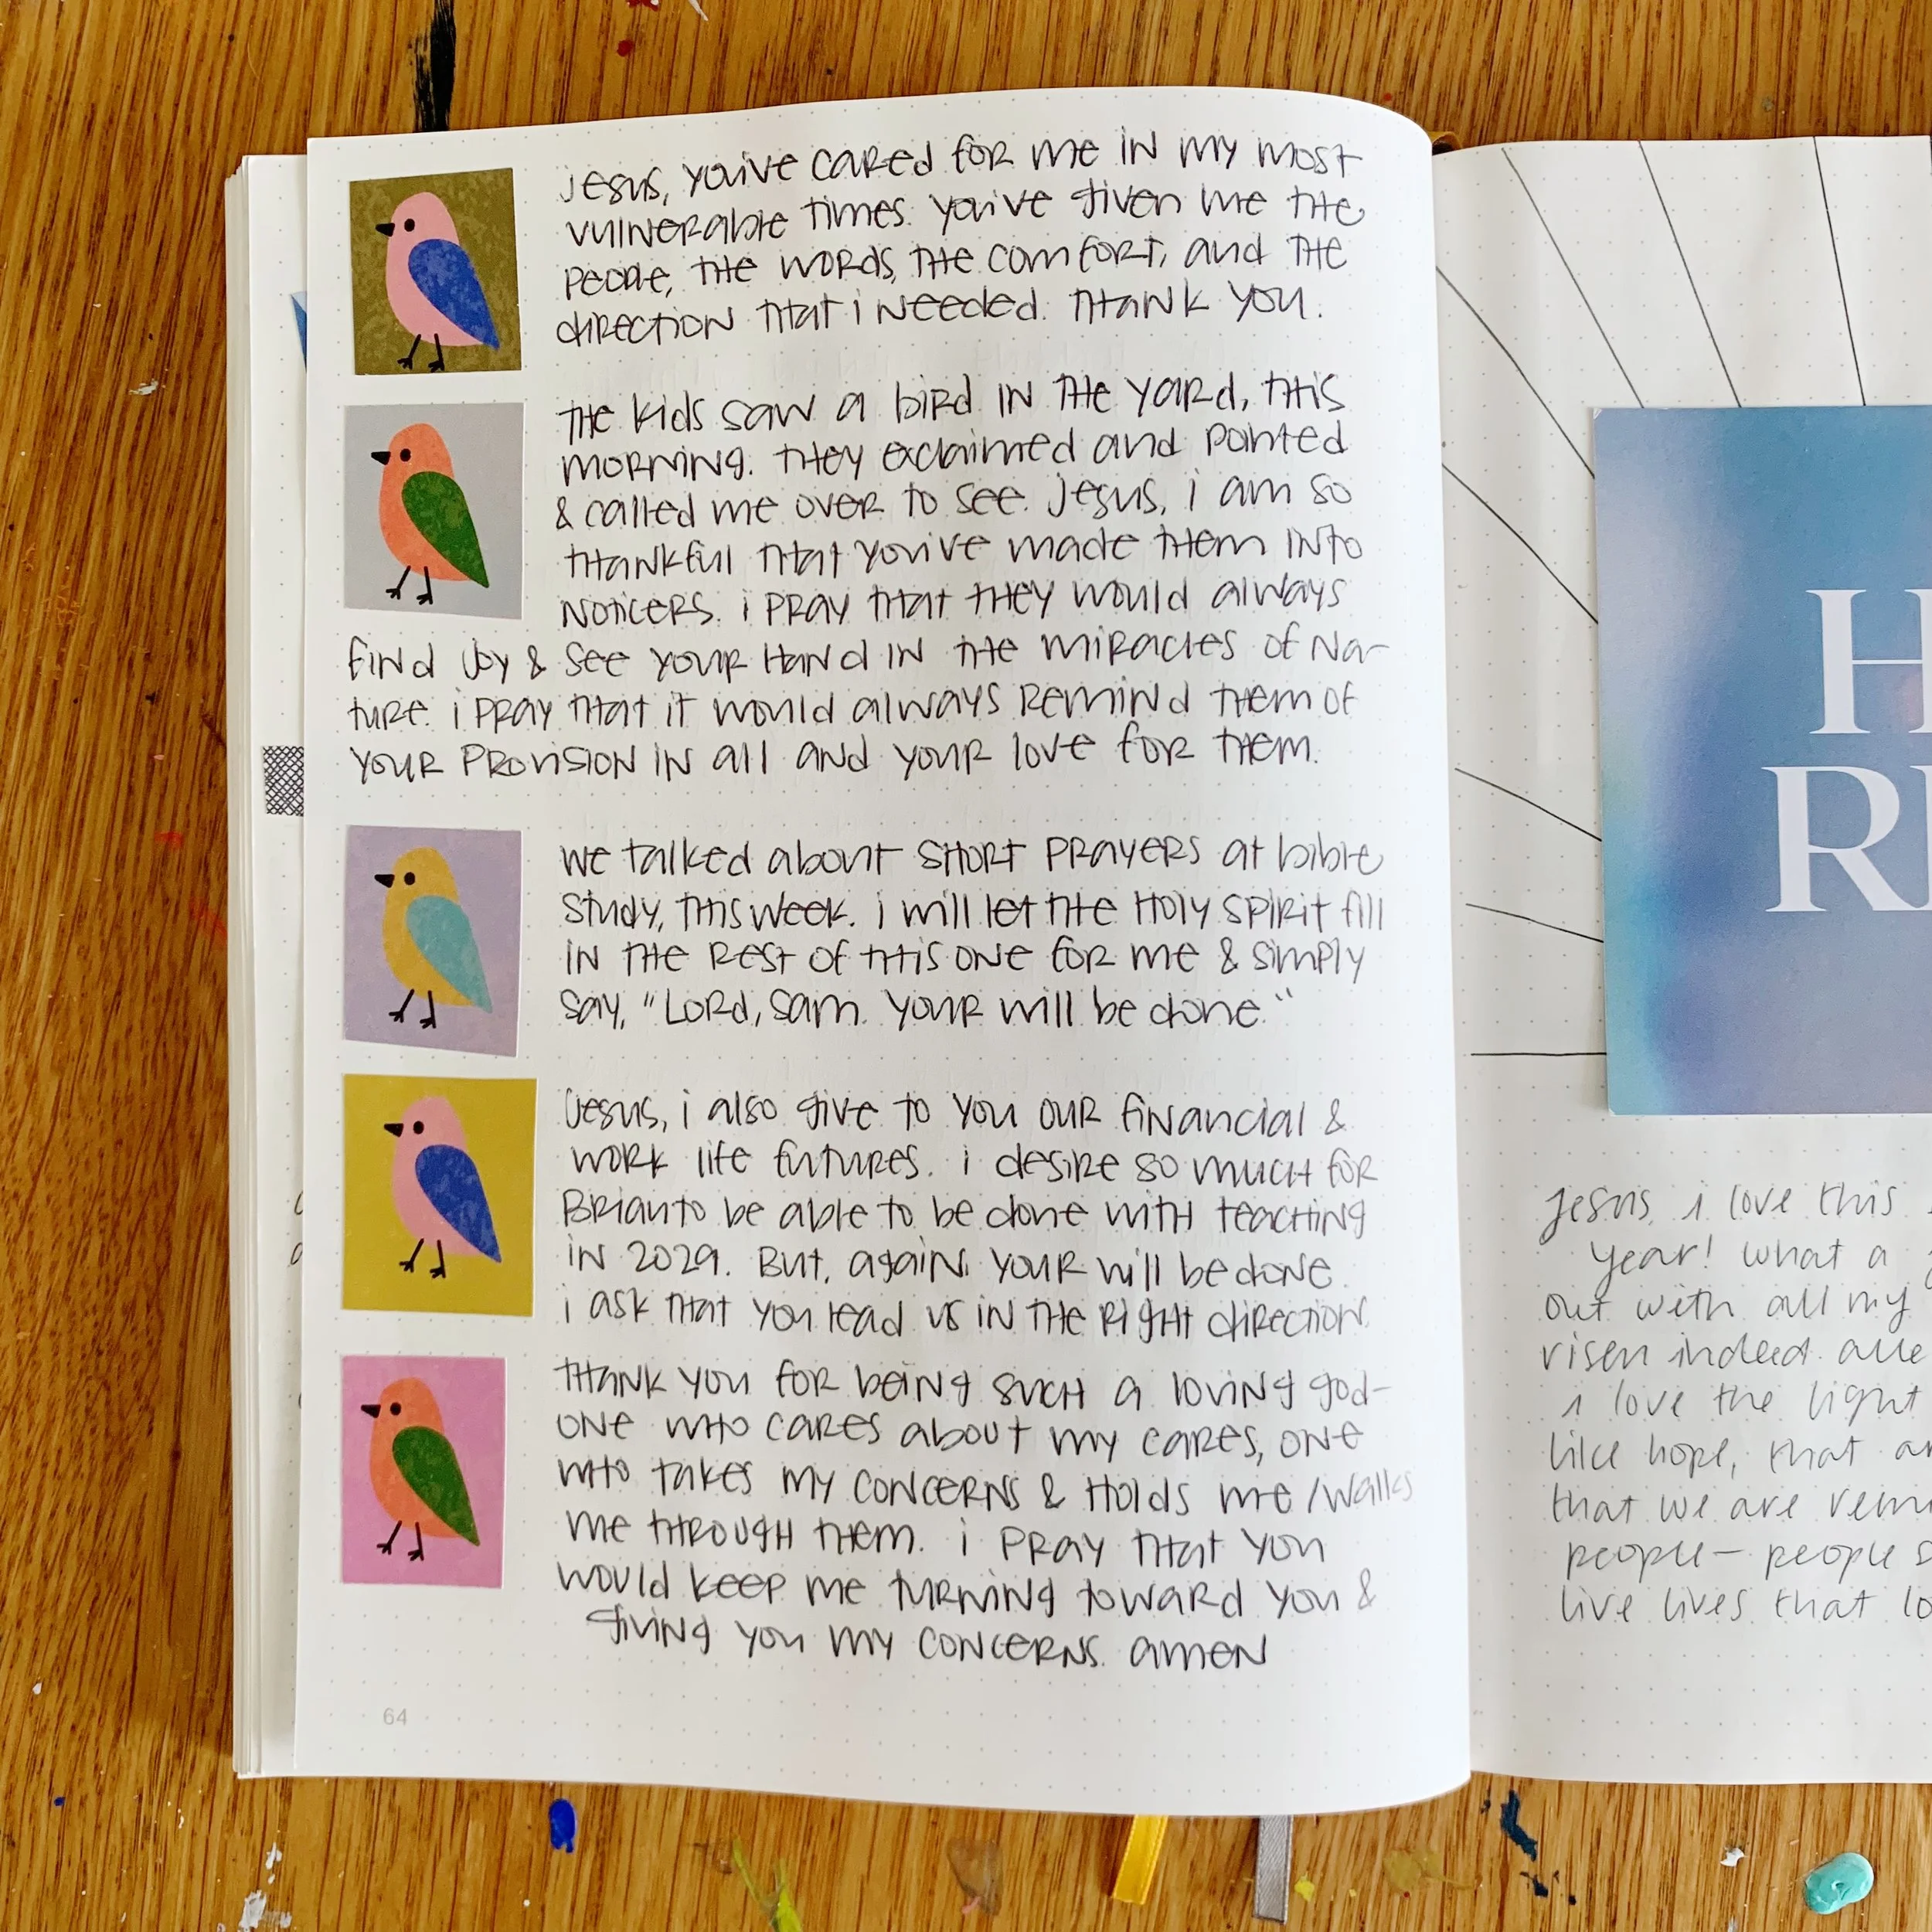 jesus, you've cared for me in my most
vulnerable times. you've given me the
people, the words, the comfort, and the
direction that i needed. thank you.
the kids saw a bird in the yard, this
morning. they exclaimed and pointed
& called me over to see. jesus, i am so
thankful that you've made them into
noticers. i pray that they would always
find joy & see your hand in the miracles of na-
ture. i pray that it would always remind them of
your provision in all and your love for them.
we talked about short prayers at bible
study, this week. i will let the holy spirit fill
in the rest of this one for me & simply
say, "Lord, sam. your will be done."
jesus, i also give to you our financial &
work life futures. i desire so much for
Brian to be able to be done with teaching
in 2029. But, again, your will be done.
i ask that you lead us in the right direction.
thank you for being such a loving god-
one who cares about my cares, one
who takes my concerns & holds me/walks
me through them. i pray that you
would keep me turning toward you &
giving you my concerns. amen
64
H
RI
jesus, i love this
year! what a
out with all my
risen indeed.
i love the light
like hope, that
that we are
people— people
live lives that